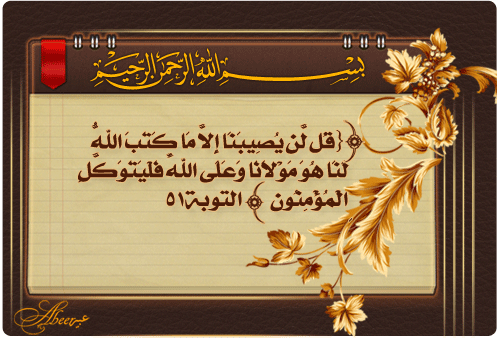 بسم الله الرحمن الرحيم
﴿قُل لَّن يُصِيبَنَا إِلاَّ مَا كَتَبَ اللّهُ
لَنَا هُوَ مَوْلاَنَا وَعَلَى اللّهِ فَلْيَتَوَكَّلِ
الْمُؤْمِنُونَ﴾ التوبة٥١
Abeer عبير